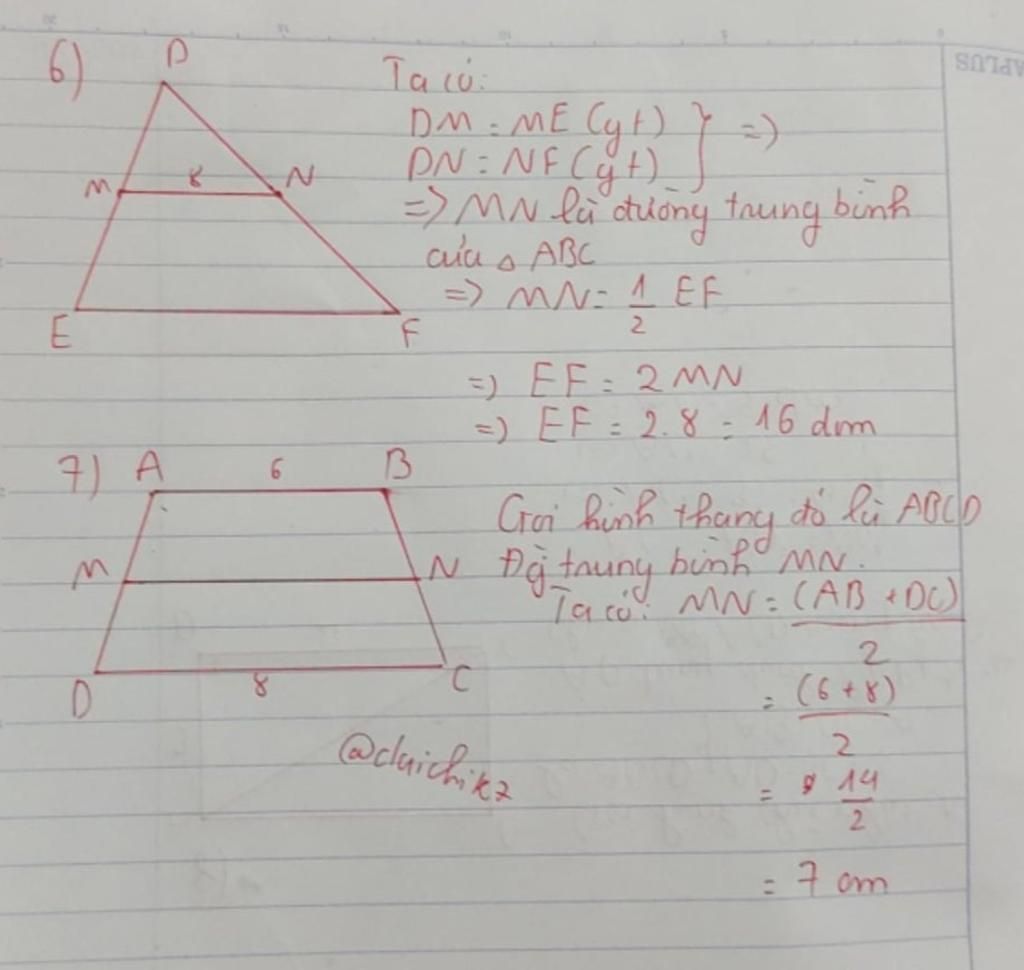 6)
D
M 8 N
E F
Ta có:
DM = ME (gt) } =>
DN = NF (gt)
=> MN là đường trung bình
của △ ABC
=> MN = 1/2 EF
=> EF = 2 MN
=> EF = 2.8 = 16 dm
7) A 6 B
M N
D 8 C
Gọi hình thang đó là ABCD
Đg trung bình MN.
Ta có: MN = (AB + DC)/2
= (6 + 8)/2
= 14/2
= 7 cm
APLUS